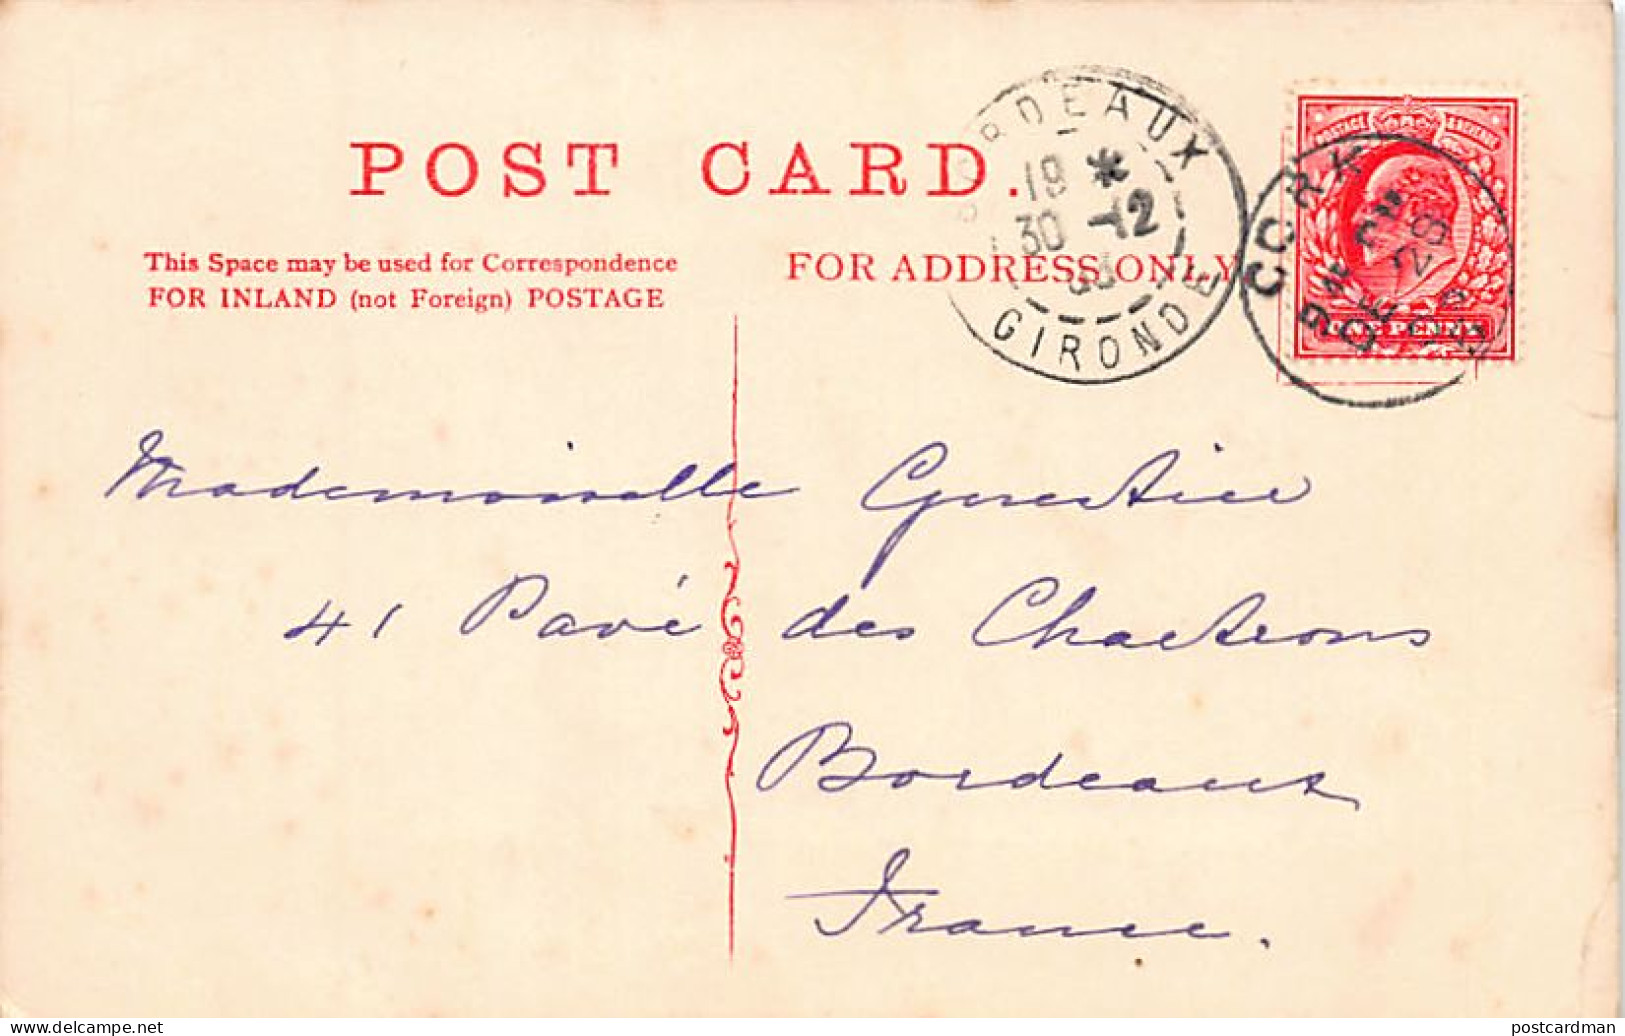 POST CARD.
This Space may be used for Correspondence
FOR INLAND (not Foreign) POSTAGE
FOR ADDRESS ONLY
BORDEAUX
19 *
30 -12
GIRONDE
POSTAGE & REVENUE
ONE PENNY
CORK
DE 28
Mademoiselle Guestier
41 Pavé des Chartrons
Bordeaux
France.
postcardman